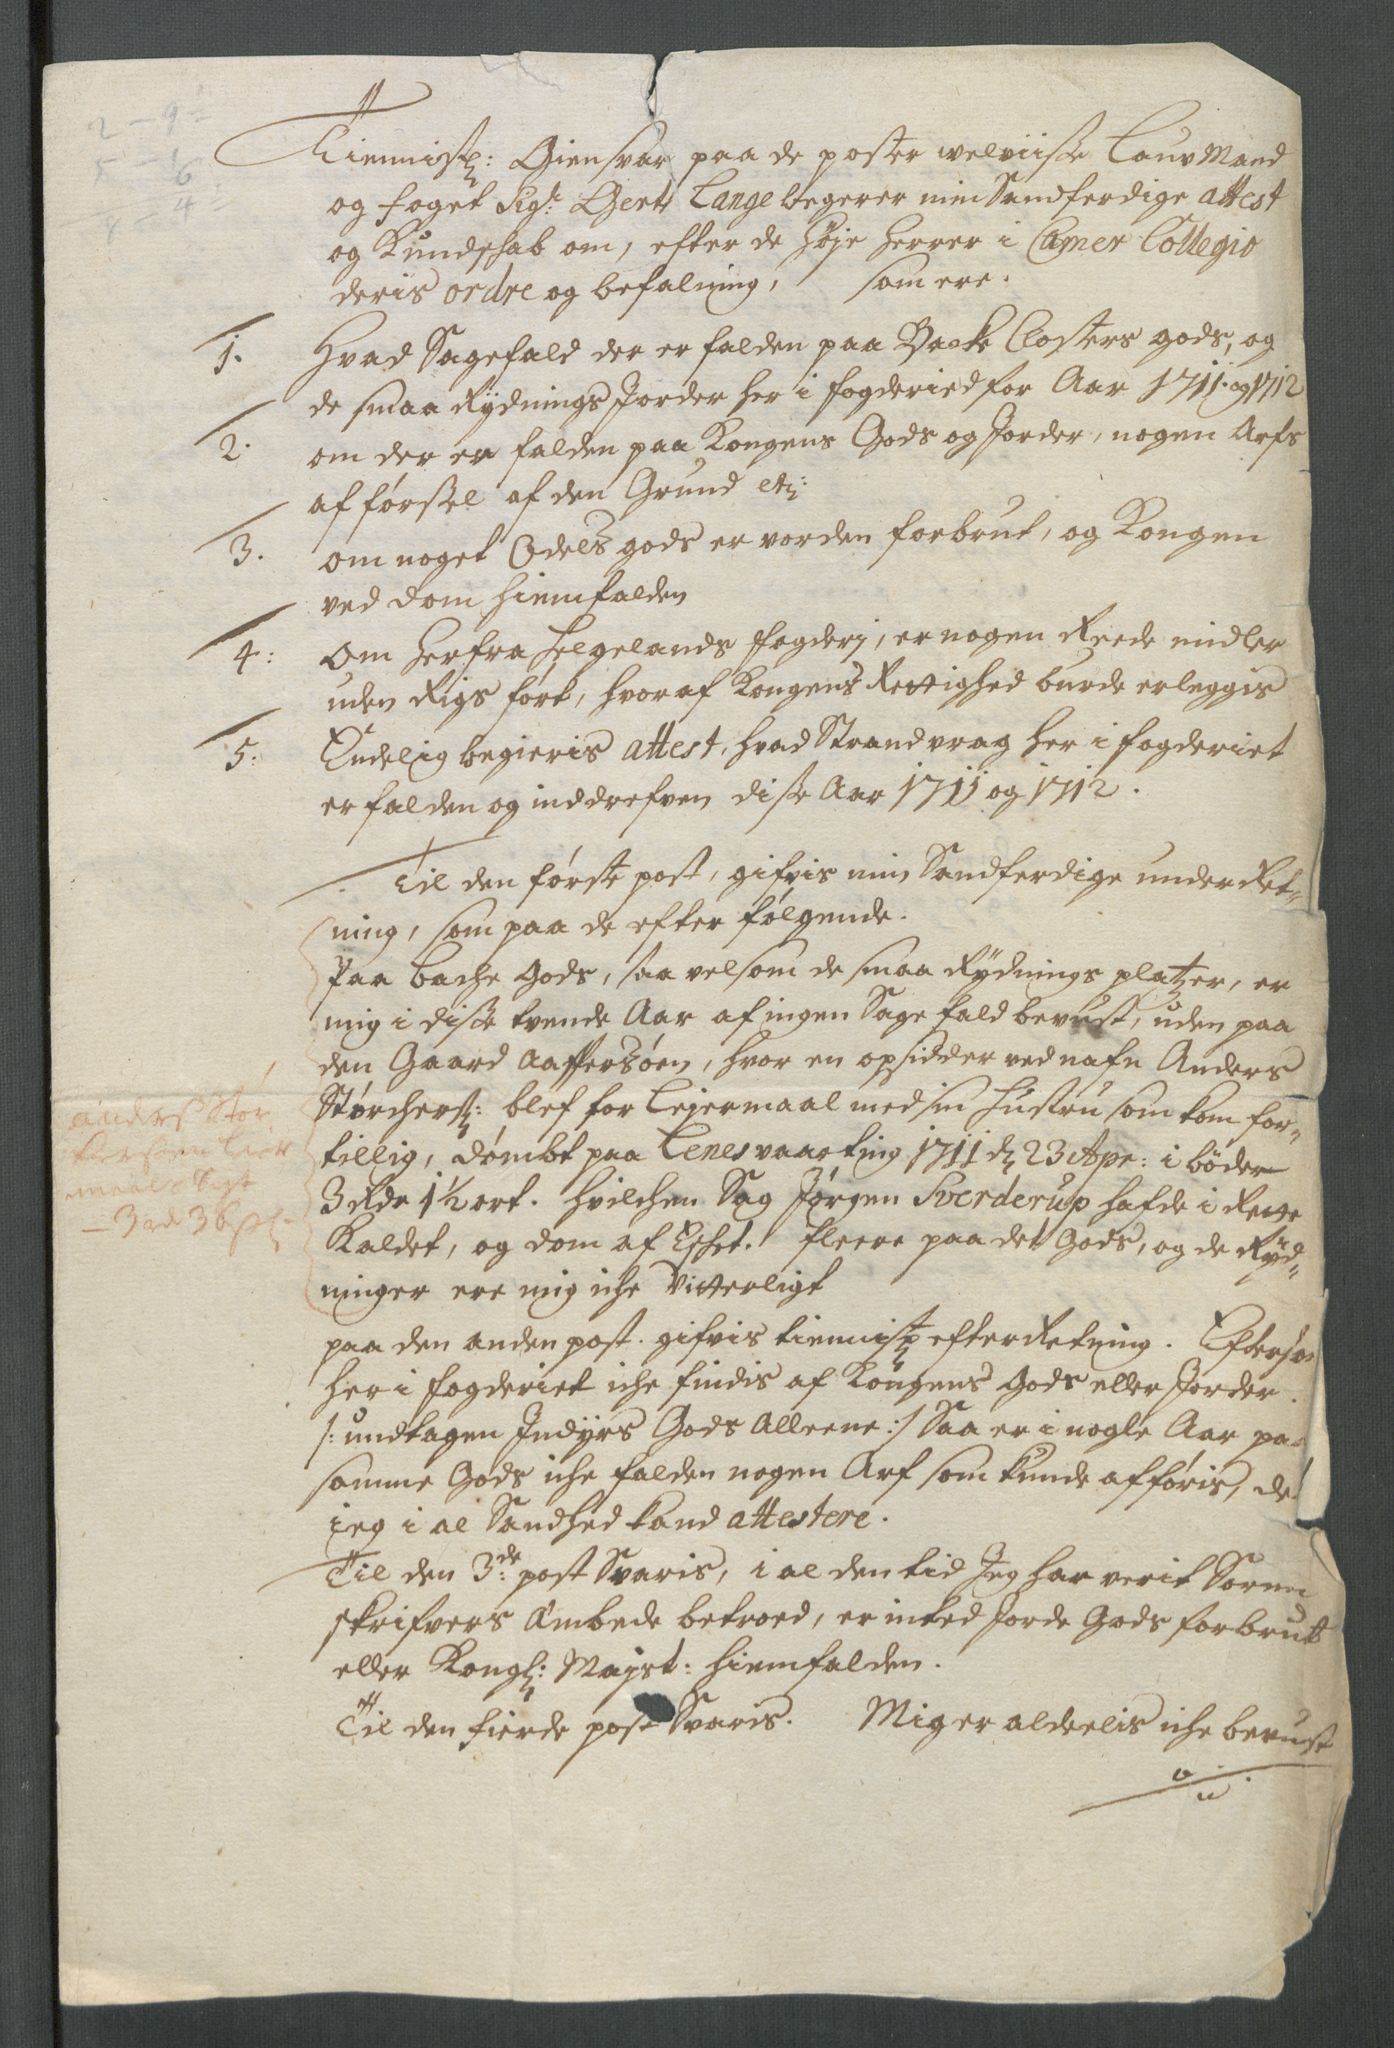 Tiennistl: Giensvar paa de poster welviise Lauvmand
og foget Sig:r Gert Lange begerer min Sandferdige attest
og Kundschab om, efter de høje Herrer i Camer Collegio
deris ordre og befalning, som ere.
1. Hvad Sagefald der er falden paa Backe Closters gods, og
de smaa Rydnings Jorder her i fogderied for Aar 1711. og 1712
2. om der er falden paa Kongens Gods og Jorder, nogen Arfs
afførssel af den Grund etc:
3. om noget Odels gods er vorden forbrut, og Kongen
ved dom hiemfalden
4: Om herfra Helgelands fogderj, er nogen Reede midler
uden Rigs ført, hvoraf Kongens Rettighed burde erleggis
5: Endelig begieris attest, hvad Strandvrag her i fogderiet
er falden og inddrefven disse Aar 1711 og 1712.
Til den første post, gifvis min Sandferdige underRet-
ning, som paa de efter følgende.
Paa bache Gods, saa velsom de smaa Rydnings platzer, er
mig i disse tvende Aar af ingen Sage fald bevust, uden paa
den Gaard , hvor en opsidder ved nafn Anders
Størchers: blef for Lejermaal med sin Hustru som kom for-
tillig, dømbt paa Lenes vaarting 1711 d 23 Apr: i bøder
3 Rdr 1½ ort. hvilchen Sag Jørgen Sverderup hafde i Rette
Kaldet, og dom af Eschet. fleere paa det Gods, og de Ryd-
ninger ere mig iche vitterligt
anders Stør
kersen Leier
maals Sigt
- 3 rd 36 s
paa den anden post. gifvis tiennistl efterRetning. Eftersom
her i fogderiet iche findis af Kongens Gods eller Jorder
/: undtagen Indyrs Gods Alleene :/ Saa er i nogle Aar paa
samme Gods iche falden nogen Arf som kunde afføris, det
ieg i al Sandhed kand attestere.
Til den 3:de post Svaris, i al den tid Jeg har verit Soren
skrifvers Ambede betroed, er inted Jorde Gods forbrut
eller Kongl: Majst: hiemfalden.
Til den fierde post Svaris. Mig er aldeelis iche bevust